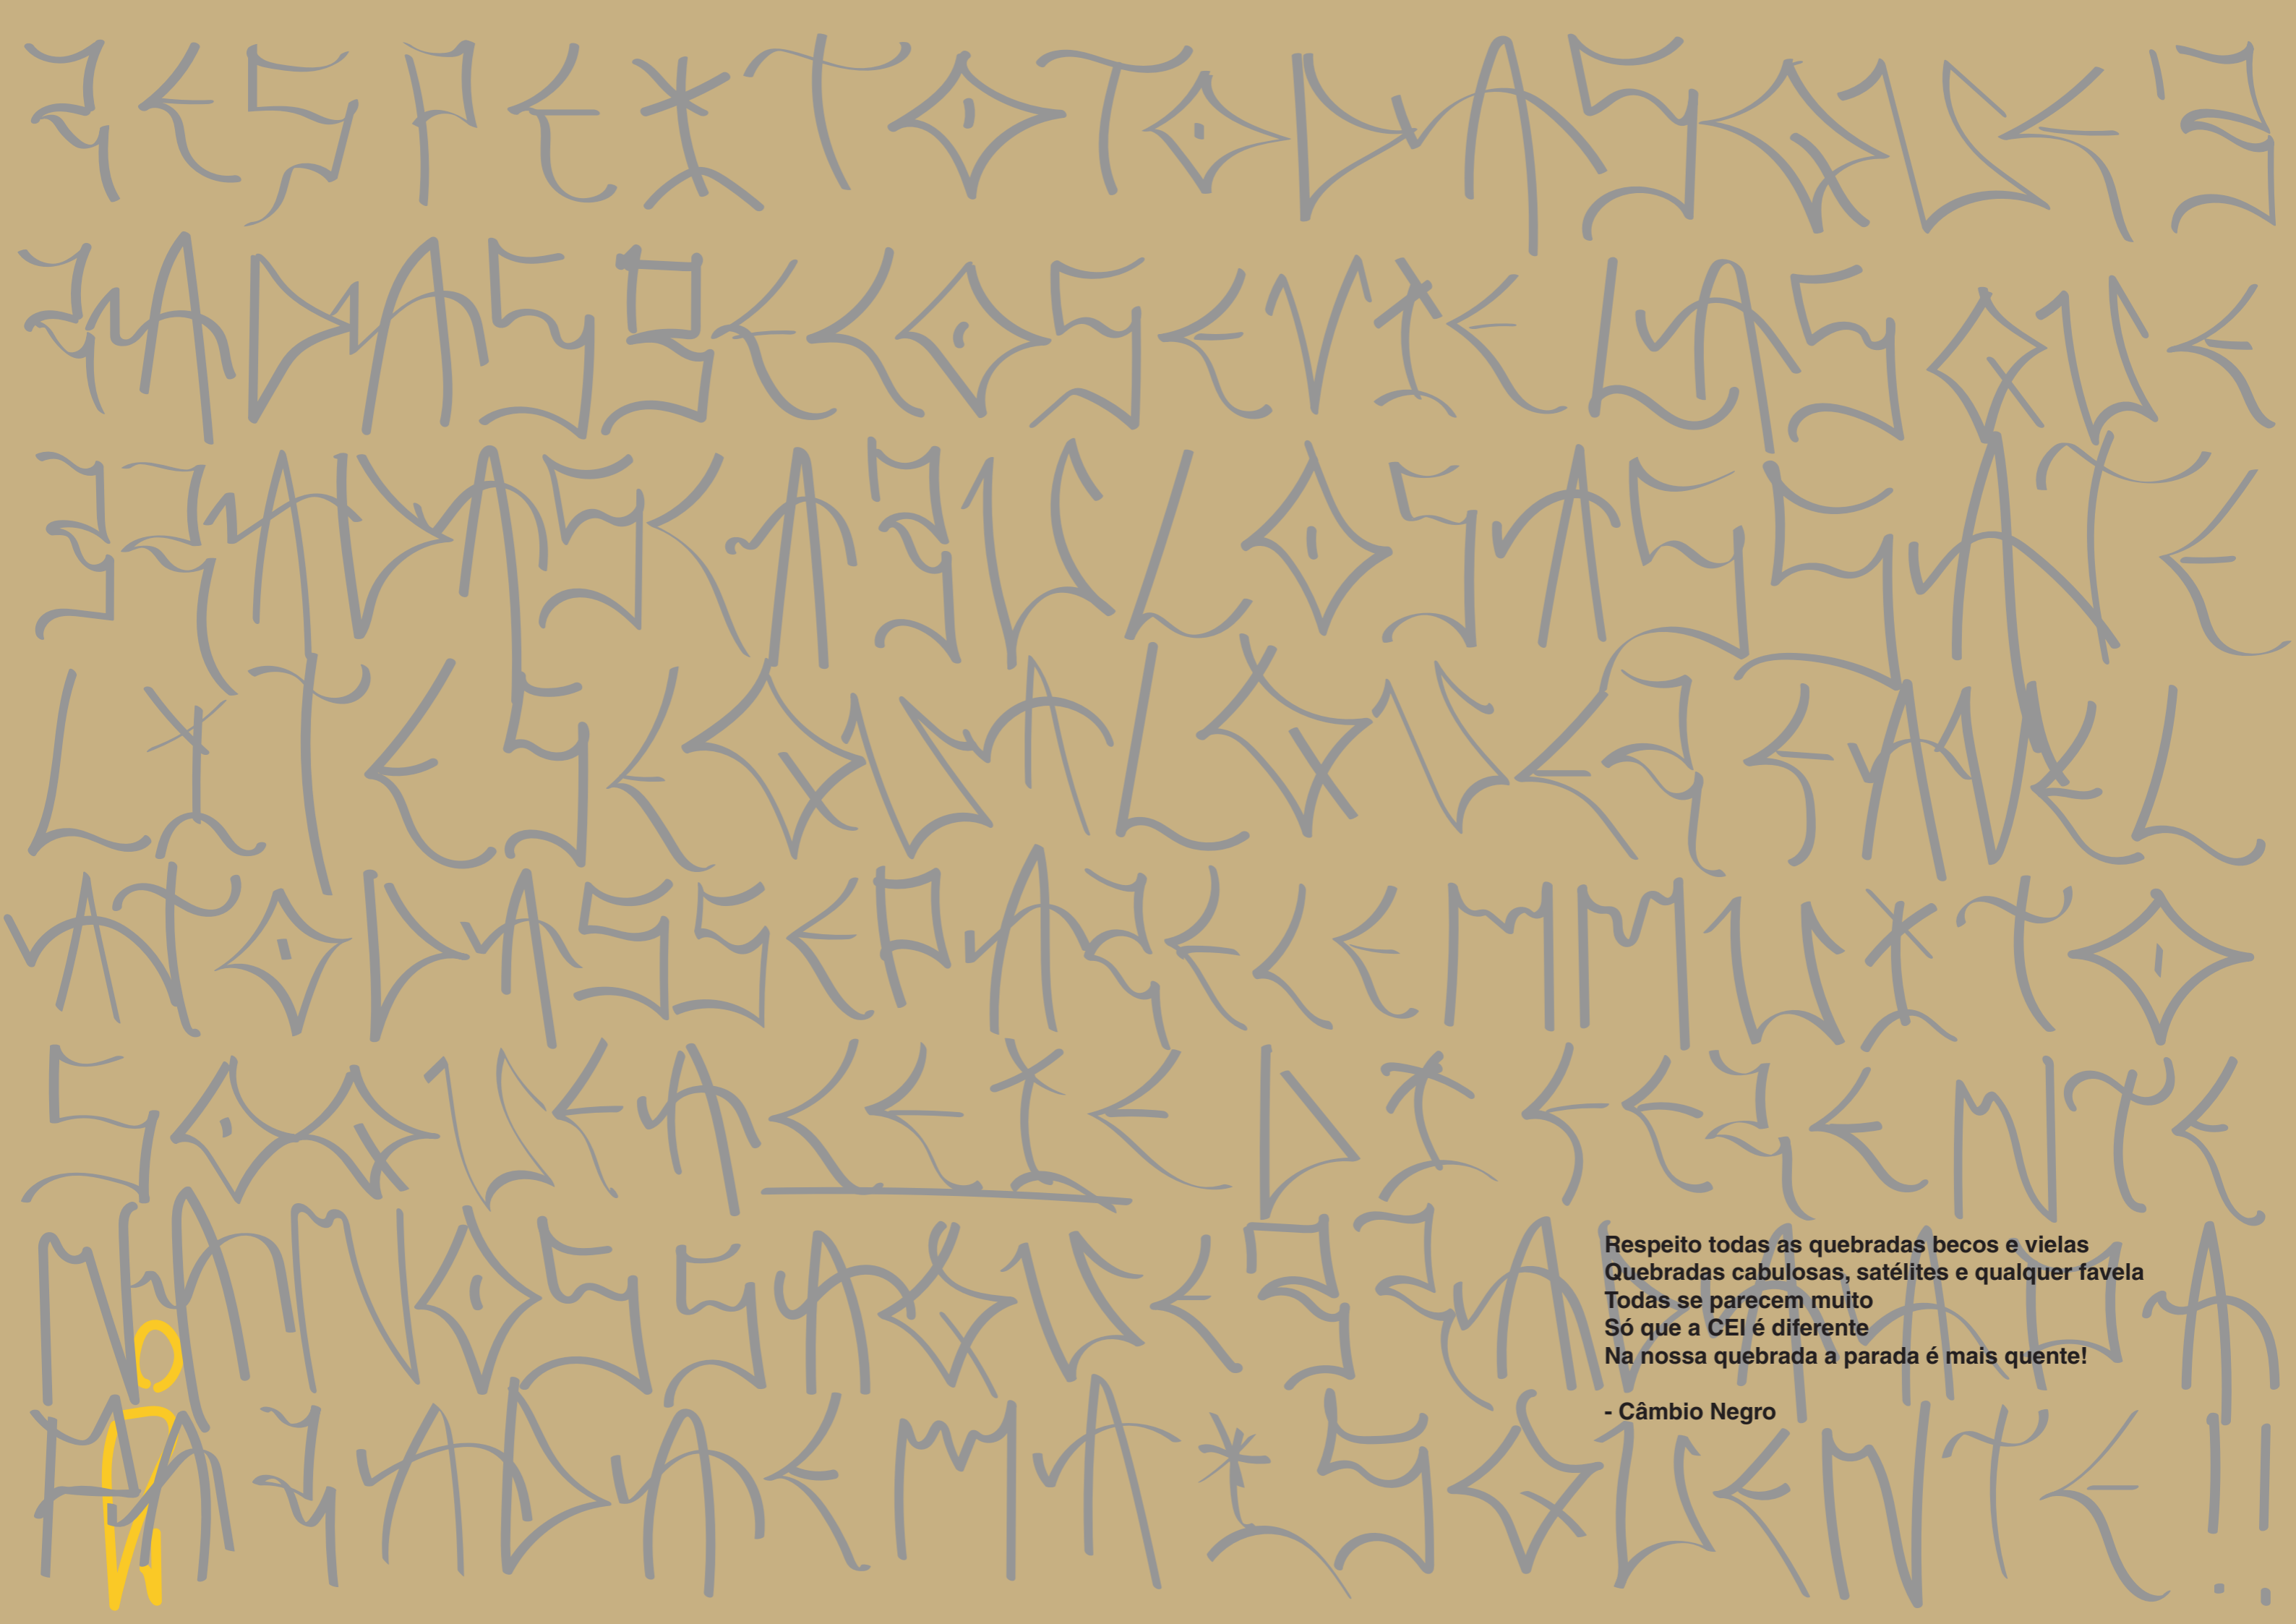 RESPEITO TODAS QUEB
RADAS BECOS E VIELAS QUE
BRADAS CABULOSAS SATE
LITES E QUALQUER FAVEL
A TODAS SE PARECEM MUITO
SO QUE A CEI E DIFERENTE
NA NOSSA QUEBRADA A PA
PARADA E MAIS QUENTE!!
Respeito todas as quebradas becos e vielas
Quebradas cabulosas, satélites e qualquer favela
Todas se parecem muito
Só que a CEI é diferente
Na nossa quebrada a parada é mais quente!
- Câmbio Negro